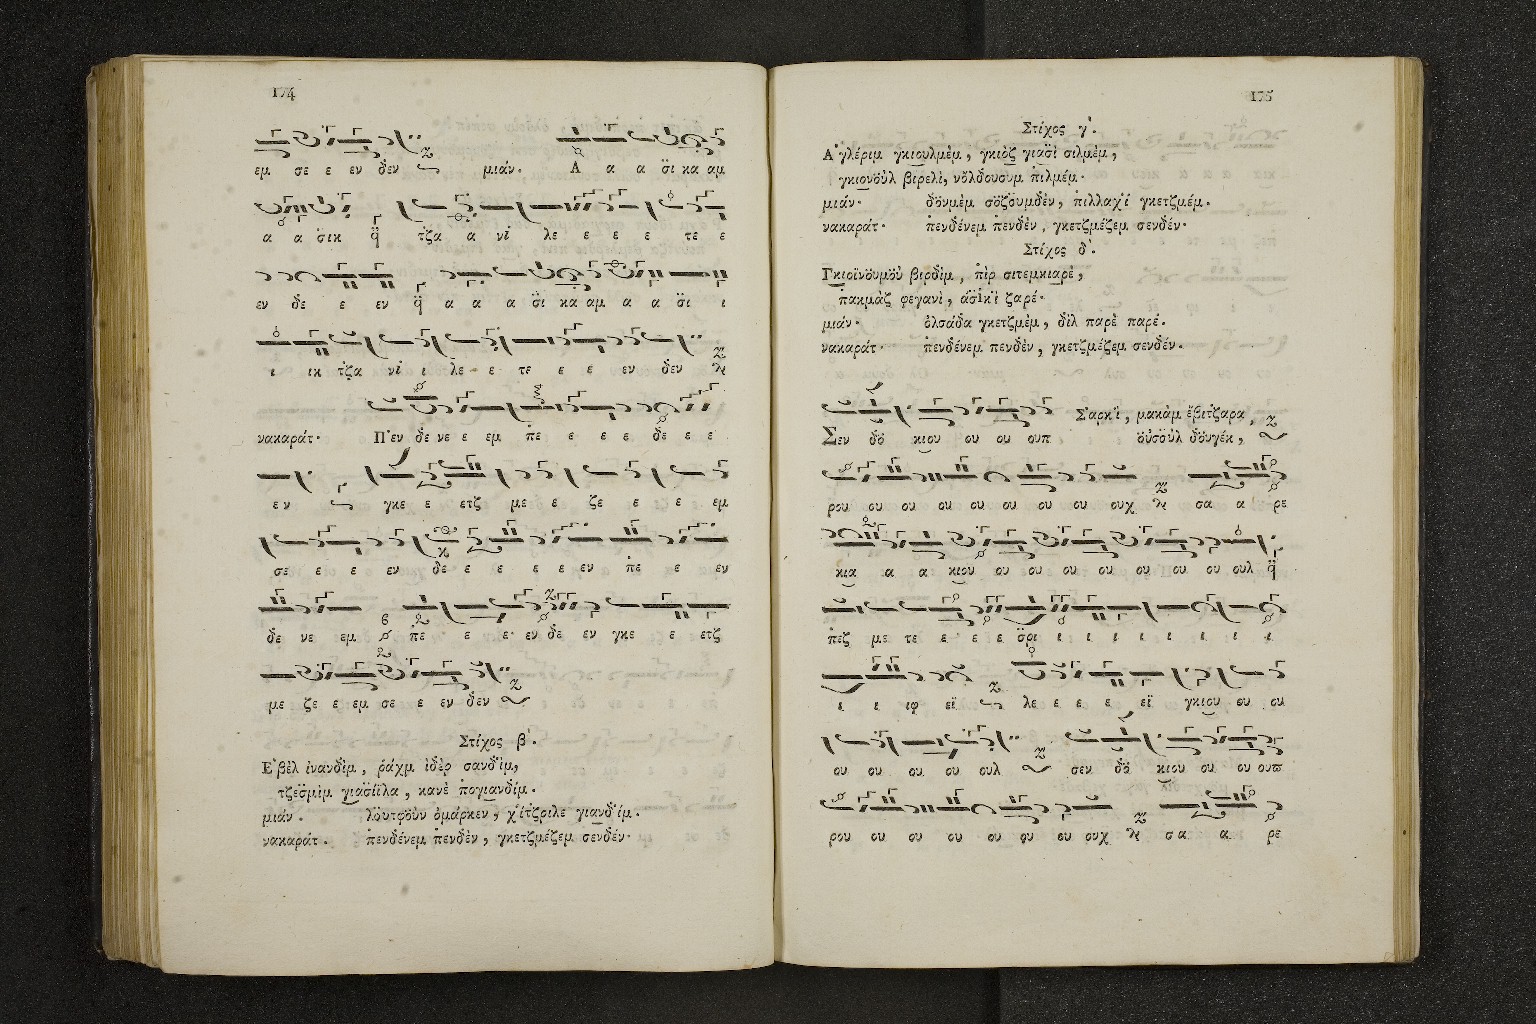 174
εμ σε ε εν δεν μιάν· Α α α σι κα αμ
α α σικ τζα α νι λε ε ε ε τε ε
εν δε ε εν α α α σι κα αμ α α σι ι
ι ικ τζα νι ι λε ε τε ε ε εν δεν
νακαράτ· Πεν δε νε ε εμ πε ε ε ε δε ε ε
εν γκε ε ετζ με ε ζε ε ε ε εμ
σε ε ε ε εν δε ε ε ε ε ε εν πε ε εν
δε νε εμ πε ε ε ε εν δε εν γκε ε ετζ
με ζε ε εμ σε ε εν δεν
Στίχος β'.
Ε'βὲλ ἰνανδὶμ, ῥάχμ ἰδὲρ σανδ'ὶμ,
τζεσμὶμ γιασίϊλα, κανὲ πογιανδίμ.
μιάν. λουτφοὺν ὀμάρκεν, χ'ίτζριλε γιανδ'ίμ.
νακαράτ. πενδένεμ πενδὲν, γκετζμέζεμ σενδέν·
175
Στίχος γ'.
Α'γλέριμ γκιουλμὲμ, γκιὸζ γιασὶ σιλμὲμ,
γκιονοὺλ βιρελὶ, νὄλδουσυμ πιλμέμ.
μιάν· δόνμὲμ σὄζουμδὲν, πιλλαχ'ὶ γκετζμέμ.
νακαράτ· πενδένεμ πενδὲν, γκετζμέζεμ σενδέν·
Στίχος δ'.
Γκιοϊνουμοὺ βιρδὶμ, πὶρ σιτεμκιαρὲ,
πακμὰζ φεγανὶ, ἀσὶκ'ὶ ζαρέ·
μιάν· ὀλσάδα γκετζμὲμ, δὶλ παρὲ παρέ.
νακαράτ· πενδένεμ πενδὲν, γκετζμέζεμ σενδέν.
Σαρκ'ὶ, μακὰμ ἔβιτζαρα,
Σεν δὸ κιου ου ου ουπ οὐσοὺλ δουγέκ,
ρου ου ου ου ου ου ου ου ουχ σα α ρε
κια α α κιου ου ου ου ου ου ου ου ουλ
πεζ με τε ε ε ε σρι ι ι ι ι ι ι ι ι
ι ι ιφ εϊ λε ε ε ε εϊ γκιου ου ου
ου ου ου ου ουλ σεν δὸ κιου ου ου ουπ
ρου ου ου ου ου ου ου ουχ σα α ρε